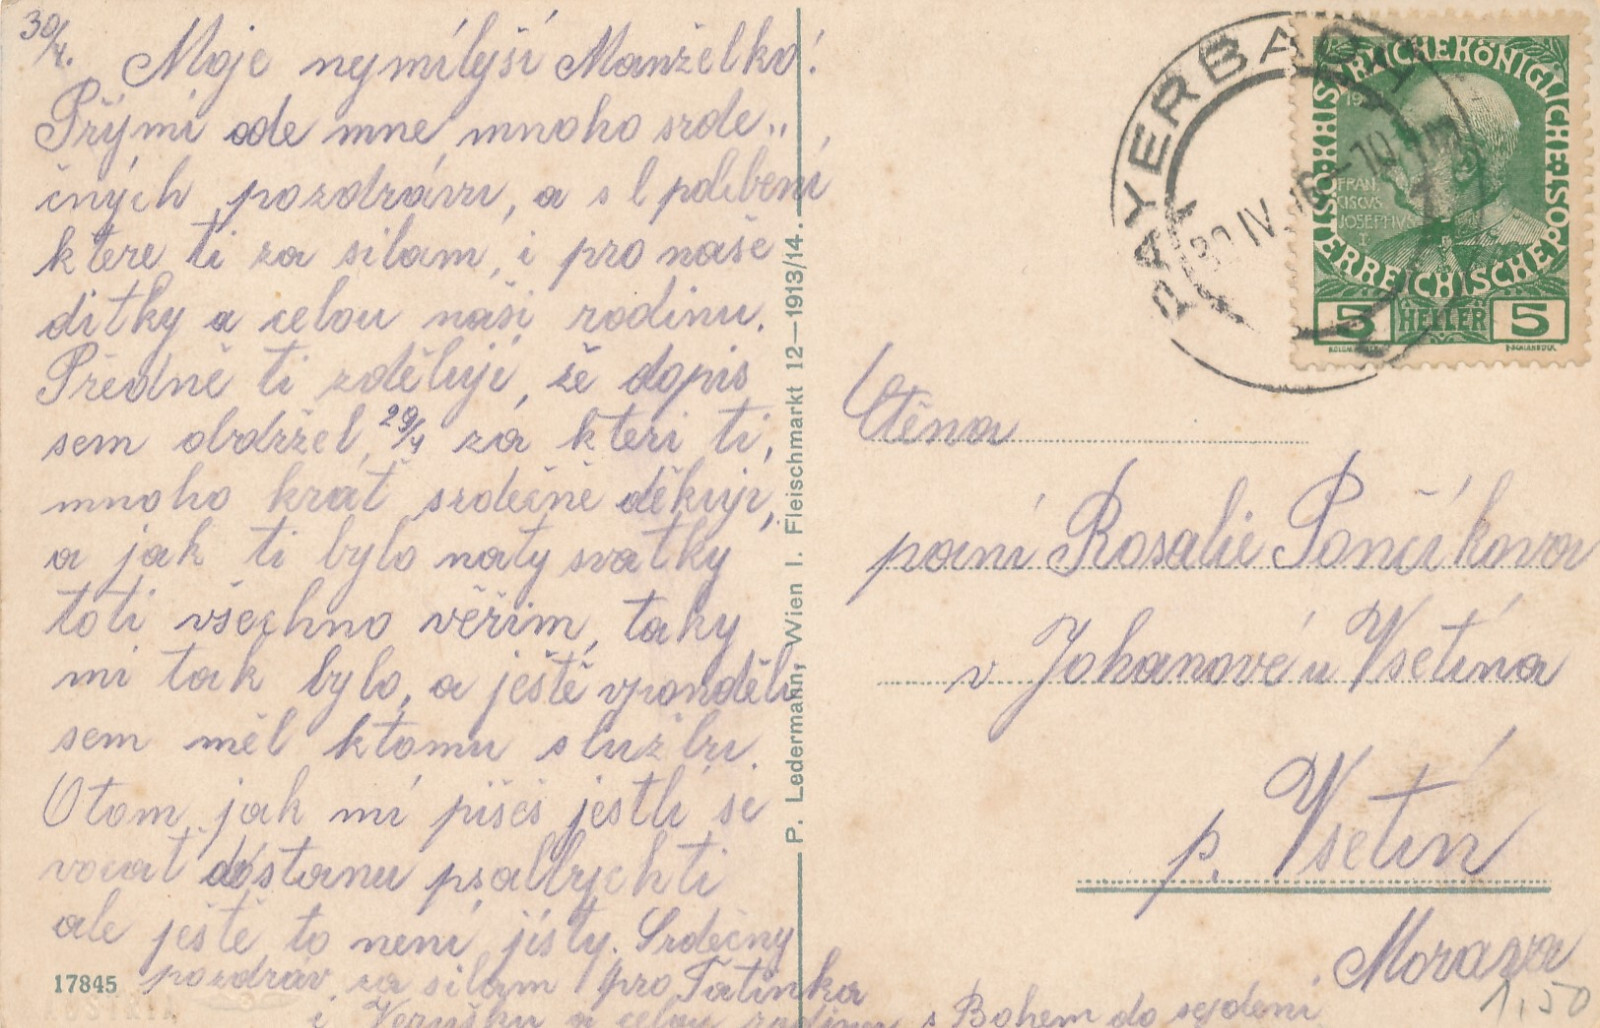 30/4.
Moje nymilejší Manželko!
Přijmi ode mne mnoho srde„
čných pozdravu, a s l polibení
ktere ti za silam, i pro naše
ditky a celou naši rodinu.
Předně ti zděluji, že dopis
sem obdržel, 29/4 za kteri ti,
mnoho krať srdečně děkuji,
a jak ti bylo naty svatky
toti všechno věřim, taky
mi tak bylo, a ještě vponděli
sem měl ktomu službu.
Otom jak mi pišeš jestli se
vocať dostanu psalbych ti
ale ještě to neni jisty. Srdečny
pozdrav za silam pro Tatinka
i Verušku a celou rodinu s Bohem do sejdeni
17845
P. Ledermann, Wien I. Fleischmarkt 12—1913/14.
PAYERBACH
30 IV 16-10
ÖSTERREICHISCHE POST
FRAN
CISCVS
JOSEPHVS
I
5 HELLER 5
Ctěna
pani Rosalie Pončíkova
v Johanové u Vsetína
p. Vsetín
Morava
1,50